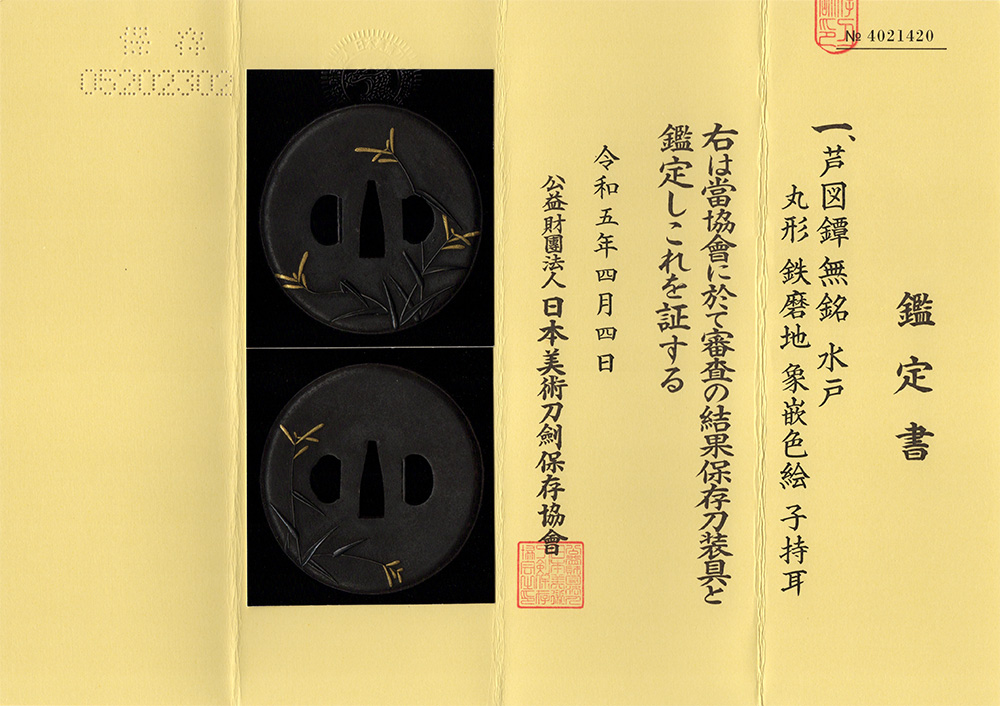 № 4021420
鑑定書
一、芦図鐔 無銘 水戸
丸形 鉄磨地 象嵌色絵 子持耳
右は當協會に於て審査の結果保存刀装具と
鑑定しこれを証する
令和五年四月四日
公益財團法人 日本美術刀劍保存協會
保存
05202302